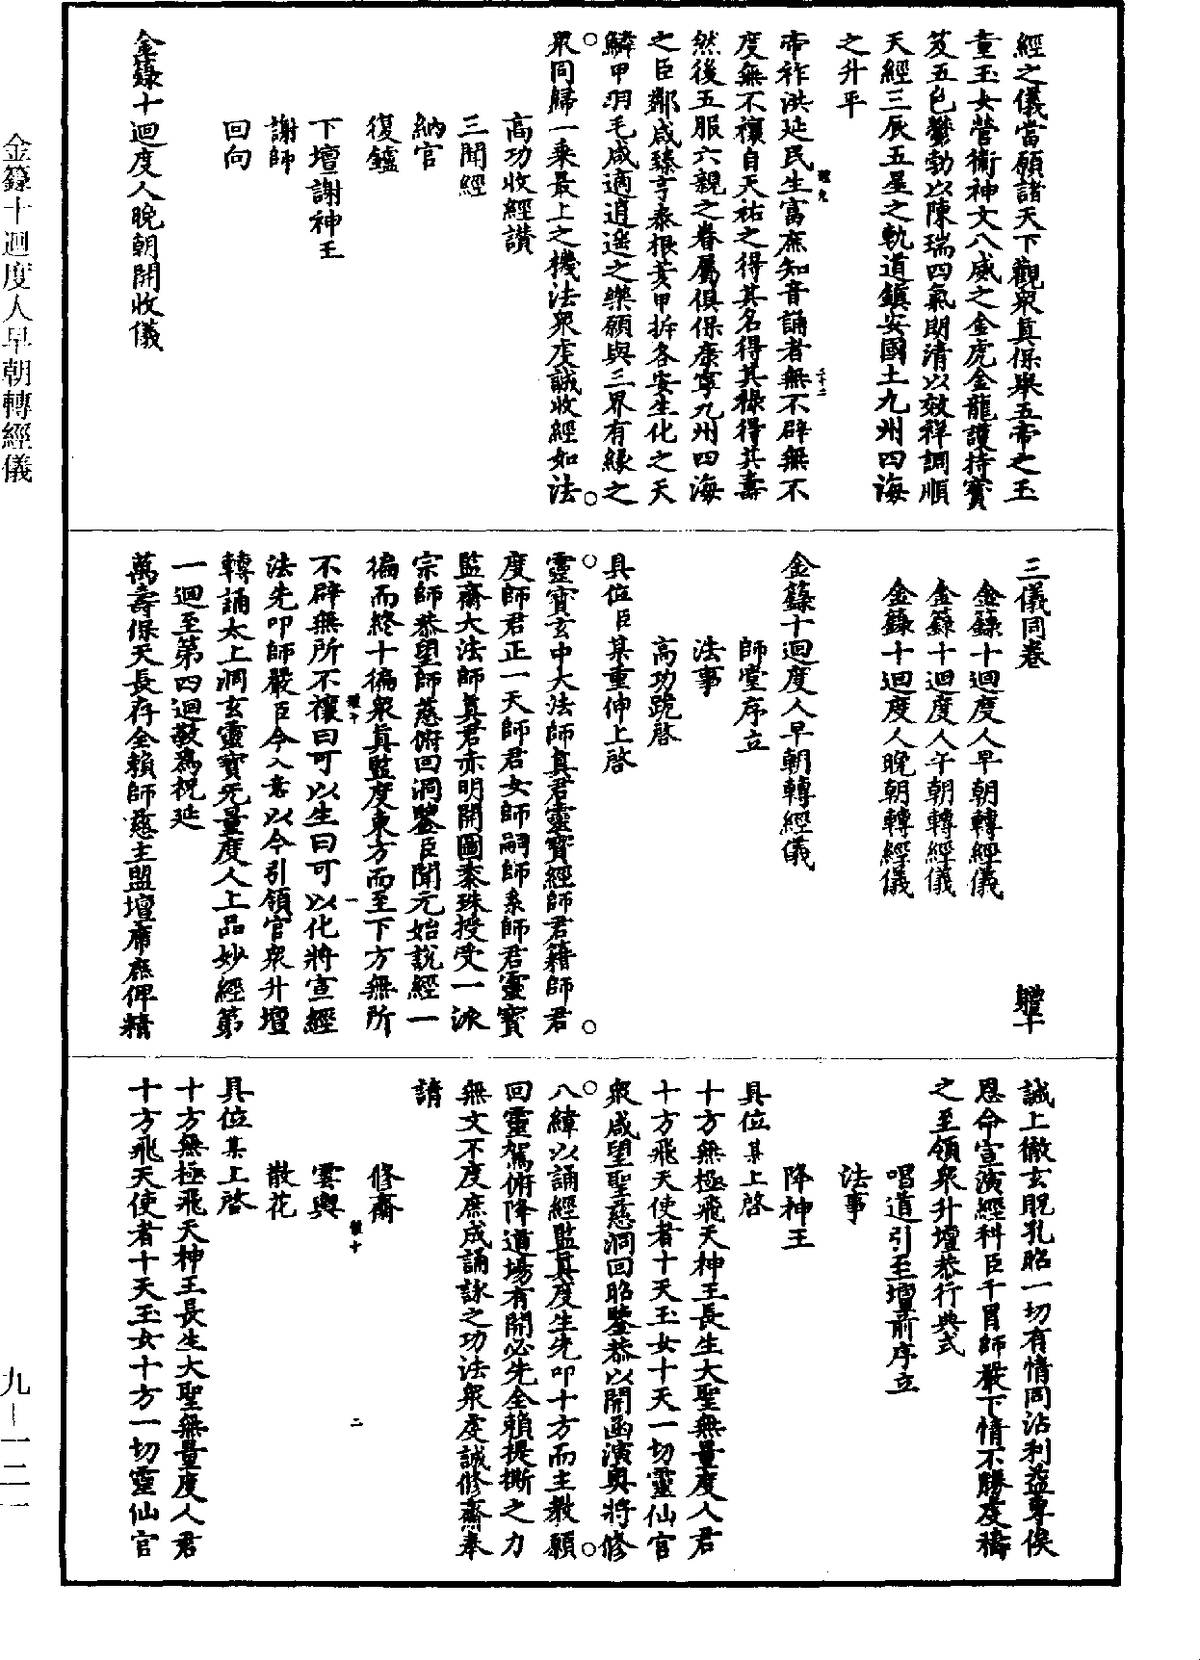 經之儀當願諸天下觀眾真保舉五帝之玉
童玉女營衛神文八威之金虎金龍護持寶
笈五色鬱勃以陳瑞四氣朗清以效祥調順
天經三辰五星之軌道鎮安國土九州四海
之升平
帝祚洪延民生富庶知音誦者無不辟無不
度無不禳自天祐之得其名得其祿得其壽
然後五服六親之眷屬俱保康寧九州四海
之臣鄰咸臻亨泰根荄甲拆各安生化之天
鱗甲羽毛咸適逍遙之樂願與三界有緣之
眾同歸一乘最上之機法眾虔誠收經如法
高功收經讚
三聞經
納官
復鑪
下壇謝神王
謝師
回向
金籙十迴度人晚朝開收儀
三儀同卷
金籙十迴度人早朝轉經儀
金籙十迴度人午朝轉經儀
金籙十迴度人晚朝轉經儀
金籙十迴度人早朝轉經儀
師堂序立
法事
高功跪啓
具位臣某重伸上啓
靈寶玄中大法師真君靈寶經師君籍師君
度師君正一天師君女師嗣師系師君靈寶
監齋大法師真君赤明開圖黍珠授受一派
宗師恭望師慈俯回洞鑒臣聞元始說經一
徧而終十徧眾真監度東方而至下方無所
不辟無所不禳曰可以生曰可以化將宣經
法先叩師嚴臣今入意以今引領官眾升壇
轉誦太上洞玄靈寶无量度人上品妙經第
一迴至第四迴敬為祝延
萬壽保天長存全賴師慈主盟壇席庶俾精
誠上徹玄貺孔昭一切有情同沾利益專俟
恩命宣演經科臣干冒師嚴下情不勝虔禱
之至領眾升壇恭行典式
唱道引至壇前序立
法事
降神王
具位某上啓
十方無極飛天神王長生大聖無量度人君
十方飛天使者十天玉女十天一切靈仙官
眾咸望聖慈洞回昭鑒恭以開函演奧將修
八緯以誦經監真度生先叩十方而主教願
回靈駕俯降道場有開必先全賴提撕之力
無文不度庶成誦詠之功法眾虔誠修齋奉
請
修齋
雲輿
散花
具位某上啓
十方無極飛天神王長生大聖無量度人君
十方飛天使者十天玉女十方一切靈仙官
金籙十迴度人早朝轉經儀
九—一二一